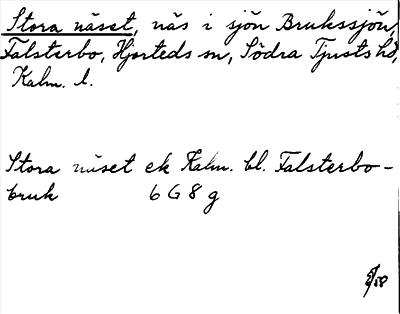 Stora näset, näs i sjön Brukssjön,
Falsterbo, Hjorteds sn, Södra Tjusts hd,
Kalm. l.
Stora näset ek Kalm. bl. Falsterbo-
bruk 6 G 8 g